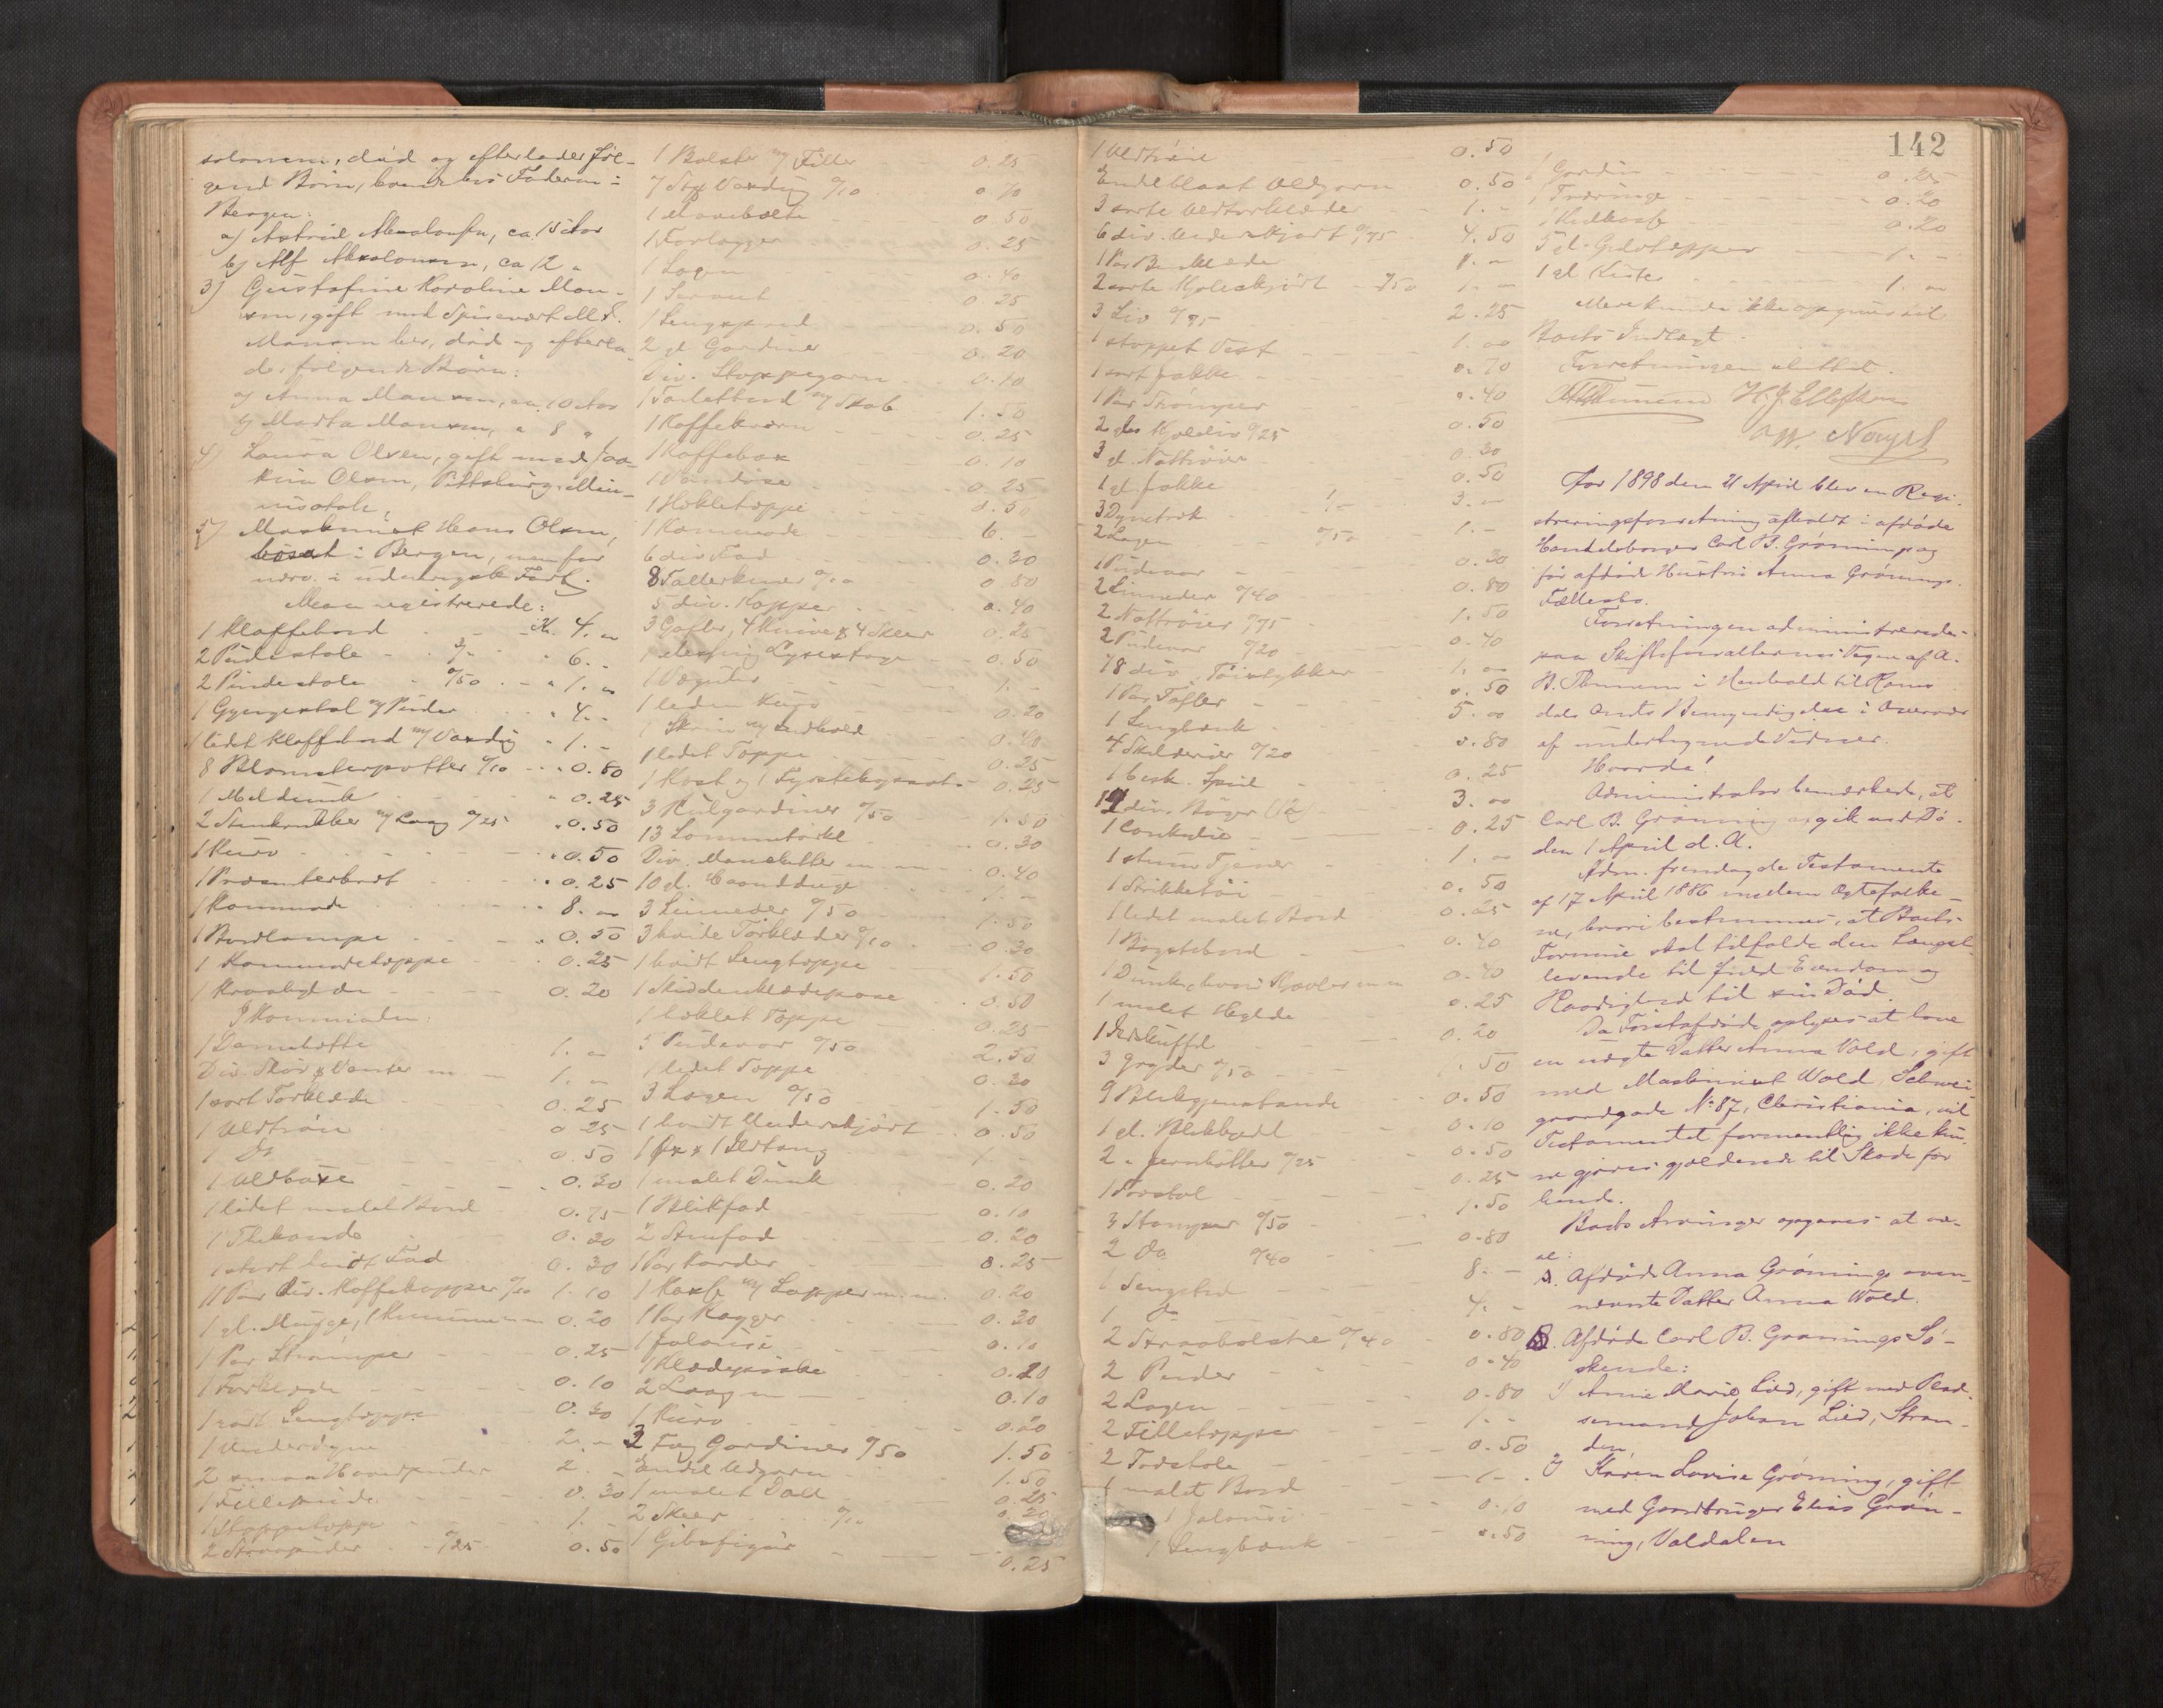 solonsen, död og efterlader föl-
gend Börn, boende hos Faderen i
Bergen:
a) Astrid Absalonsen, ca 15 Aar
b) Alf Absalonsen, ca 12 "
3) Gustafine Karoline Mon-
sen, gift med Spisevært M. S.
Monsen her, död og efterla-
der følgende Børn:
a) Anna Monsen, ca. 10 Aar
b) Marta Monsen, " 8 "
4) Laura Olsen, gift med Joa-
kim Olsen, Pittsburg, Min-
nisotah,
5) Maskinist Hans Olsen,
bosat i Bergen, men for
nærv. i udenrigsk Fart.
Man registrerede:
1 Klaffebord Kr. 4. "
2 Pindestole 3/- " 6. -
2 Pindestole 0/50 " 1. "
1 Gyngestol m/ Puder " 4. -
1 lidet Klaffebord m/ Voxdug " 1. -
8 Blomsterpotter 0/10 " 0.80
1 Meldunk " 0.25
2 Stenkrukker m/ Laag 0/25 " 0.50
1 Kurv " 0.50
1 Præsenterbret " 0.25
1 Kommode " 8. "
1 Bordlampe " 0.50
1 Kommodetæppe " 0.25
1 0.20
I Kommoden:
1 Damehatte 1. "
Div. Skør & Vanter m. m. 1. "
1 sort Forklæde 0.25
1 Uldtrøie 0.25
1 Do 0.50
1 Uldbuxe 0.30
1 lidet malet Bord 0.75
1 Thekande 0.20
1 stort hvidt Fad 0.30
11 Par div. Kaffekopper 0/10 1.10
1 gl. Mugge, 1 m m 0.20
1 Par Strømper 0.25
1 Forklæde 0.10
1 rødt Sengtæppe 0.30
1 Underdyne 2. "
2 smaa Hovedpuder 2. -
1 Fillepude 0.30
1 Stoppetæppe 1. -
2 Straapuder 0/25 0.50
1 Bolster m/ Filler 0.25
7 Stk Voxdug 0/10 0.70
1 0.50
1 Forlægger 0.25
1 Lagen 0.40
1 Serviet 0.25
1 Sengspred 0.50
2 gl. Gardiner 0.20
Div. Stoppegarn 0.10
1 Toiletbord m/ Skab 1.50
1 Kaffekværn 0.25
1 Kaffebox 0.10
1 Vandøse 0.25
1 Hekletæppe 0.50
1 Kommode 6. -
6 div Fad 0.30
8 Tallerkener 0/10 0.80
5 div. Kopper 0.40
3 Gafler, 4 Knive & 4 Skeer 0.25
1 Messing Lysestage 0.50
1 Væguhr 1. -
1 liden Kurv 0.20
1 Skrin m/ Indhold 0.40
1 lidet Tæppe 0.25
1 Kost og 1 0.25
3 Rulgardiner 0/50 1.50
13 Lommetørkl. 0.30
Div. Manschetter m. m. 0.40
10 gl. Haandduge 1. -
3 Linneder 0/50 1.50
3 hvide Tørklæder 0/10 0.30
1 hvidt Sengtæppe 1.50
1 Skiddenklædepose 0.50
1 heklet Tæppe 0.25
5 Pudevar 0/50 2.50
1 lidet Tæppe 0.20
3 Lagen 0/50 1.50
1 hvidt Underskjørt 0.50
1 Øx & 1 Ildtang 1. -
1 malet Dunk 0.20
1 Blikfad 0.10
2 Stenfad 0.20
1 Par Karder 0.25
1 Kasse m/ Lapper m. m. 0.20
1 Par Kagger 0.30
1 Jalousi 0.10
1 Klædepiske 0.20
2 Laag 0.10
1 Kurv 0.20
3 Fag Gardiner 0/50 1.50
Endel Uldgarn 1.50
1 malet Dall 0.25
2 Skeer 0/10 0.20
1 Gibsfigur 0.25
142
1 Uldtrøie 0.50
Endel blaat Uldgarn 0.50
3 sorte Uldtørklæder 1. -
6 div. Underskjørt 0/75 4.50
1 Par Benklæder 1. "
2 sorte Kjoleskjørt /50 1. "
3 Liv 0/75 2.25
1 stoppet Vest 1. "
1 sort Jakke 0.70
1 Par Strømper 0.40
2 gl. Kjoleliv 0/25 0.50
3 gl. Nattrøier 0.30
1 gl. Jakke 0.50
3 Dynetræk 1/- 3. "
2 Lagen 0/50 1. -
1 Pudevar 0.30
2 Linneder 0/40 0.80
2 Nattrøier 0/75 1.50
2 Pudevar 0/20 0.40
78 div. Tøistykker 1. "
1 Par Tøfler 0.50
1 Sengbænk 5. "
4 Skilderier 0/20 0.80
1 besk. Speil 0.25
14 div. Bøger (12) 3. "
1 0.25
1 stum Tjener 1. "
1 Strikketøi 0.50
1 lidet malet Bord 0.25
1 Bagstebord 0.40
1 Dunk, hvori m m 0.40
1 malet Hylde 0.25
1 Ildskuffel 0.20
3 Gryder 0/50 1.50
9 Blikgjenstande 0.50
1 gl. 0.10
2 " Jernbøtter 0/25 0.50
1 0.25
3 Stamper 0/50 1.50
2 Do 0/40 0.80
1 Sengsted 8. -
1 Do 4. -
2 Straabolstre 0/40 0.80
2 Puder 0.40
2 Lagen 0.80
2 Filletæpper 1. -
2 Træstole 0.50
1 malet Bord 1. -
1 Jalousi 0.10
1 Sengbænk 0.50
1 Gardin 0.25
1 0.20
1 0.20
5 gl. Gulvtæpper 1. -
1 gl. Kiste 1. "
Mere kunde ikke opgives til
Boets Indtægt.
Forretningen sluttet.
H. J. Ellefsen
Aar 1898 den 21 April blev en Regi-
streringsforretning afholdt i afdøde
Handelsborger Carl B. Grønnings og
før afdøde Hustru Anna Grønnings
Fællesbo.
Forretningen administreredes
paa Skifteforvalternes Vegne af A.
B. Thunem i Henhold til Roms-
dals Amts Bemyndigelse i Overvær
af undertegnede Vidner.
Hvorda!
Administrator bemærkede, at
Carl B. Grønning afgik ved Dö-
den 1 April d. A.
Adm. fremlagde Testamente
af 17 April 1886 mellem Ægtefolke-
ne, hvori bestemmes, at Boets
Formue skal tilfalde den Længst-
levende til fuld Eiendom og
Raadighed til sin Død.
Da Førstafdøde oplyses at have
en uægte Datter Anna Wold, gift
med Maskinist Wold, Schwei-
gaardgade No 87, Christiania, vil
Testamentet formentlig ikke kun-
ne gjøres gjældende til Skade for
hende.
Boets Arvinger opgaves at væ-
re:
A. Afdøde Anna Grønnings oven-
nævnte Datter Anna Wold.
B. Afdøde Carl B. Grønnings Sø-
skende:
1) Anne Marie Lied, gift med Plad-
semand Johan Lied, Stran-
den,
2) Karen Lovise Grønning, gift
med Gaardbruger Elias Grøn-
ning, Valdalen